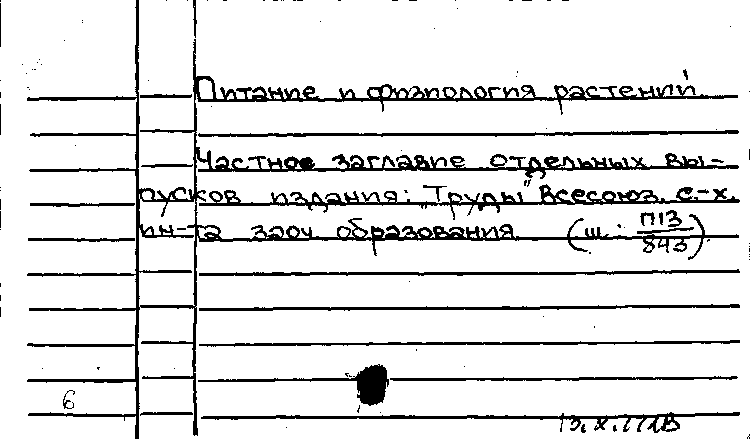 Питание и физиология растений
Частное заглавие отдельных вы-
пусков издания: „Труды" Всесоюз. с.-х.
ин-та заоч образования (ш: П13/843)
6